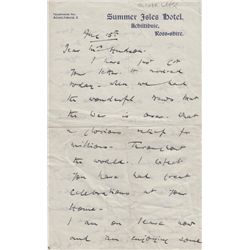 Summer Isles Hotel,
Achiltibuie,
Ross-shire.
Aug 15th
Dear Mrs
I have just got
your letter. It arrived
today - when we had
the wonderful news that
the War is over. What
a glorious relief for
millions - throughout
the world. I expect
you have had great
celebrations at your
Home -
I am on leave now
and am enjoying some